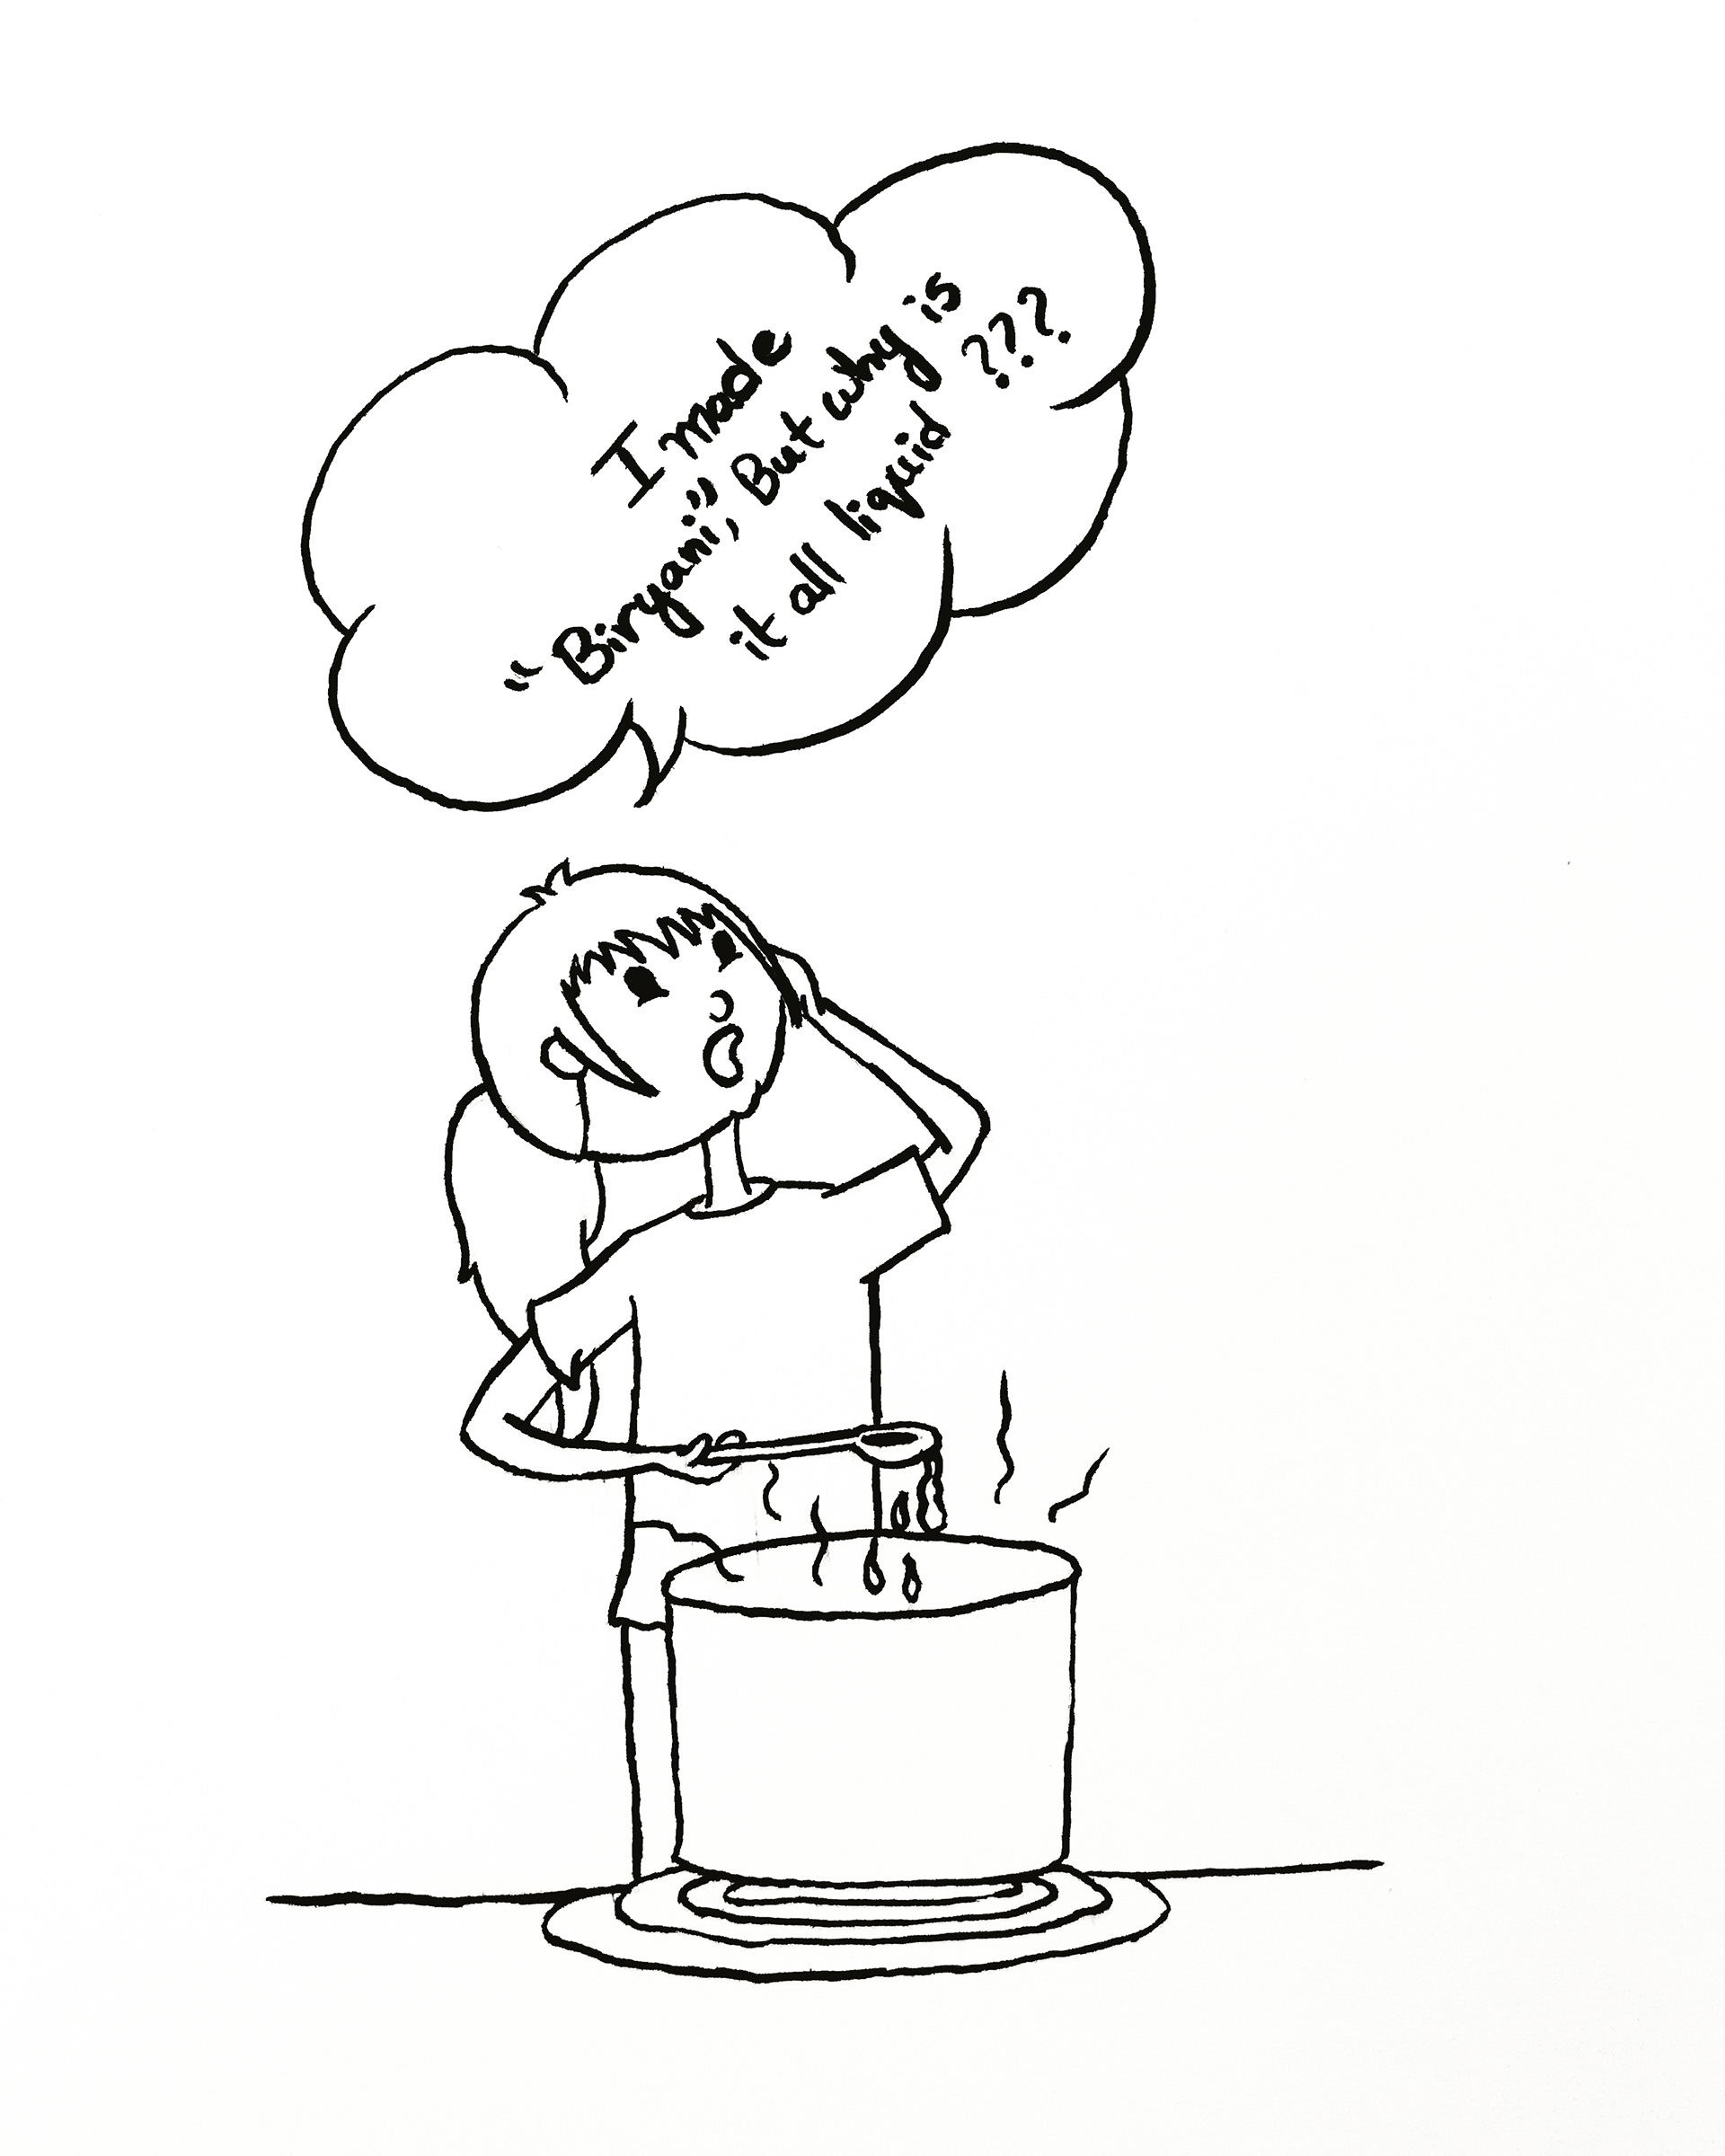 I made
"Biryani", But why is
it all liquid ???